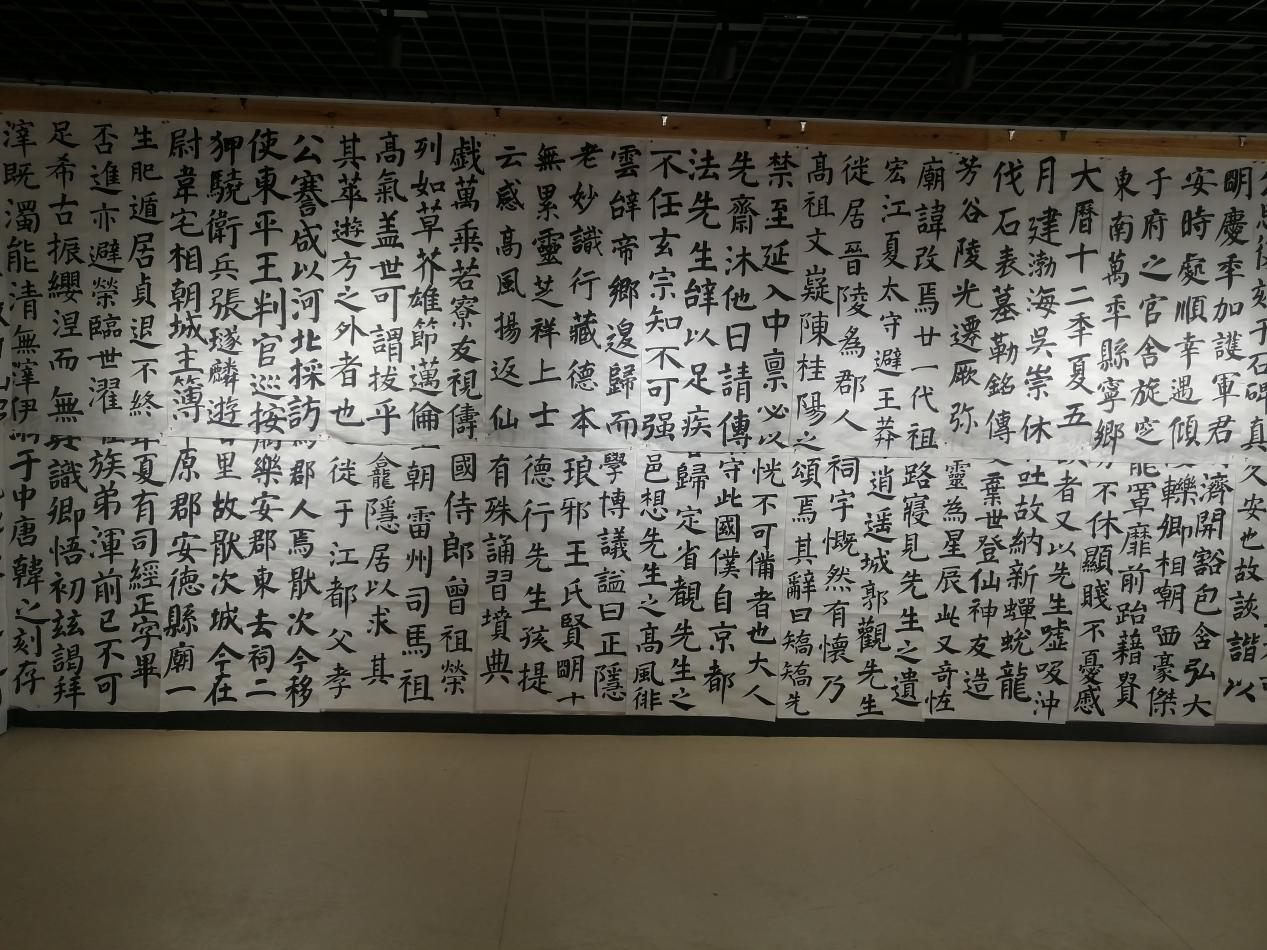 思後刻于石碑真
明慶年加護軍君
安時處順幸遇傾
于府之官舍旋窆
東南萬年縣寧鄉
大曆十二年夏五
月建渤海吳崇休
伐石表墓勒銘傳
芳谷陵光遷厥弥
廟諱改焉廿一代祖
宏江夏太守避王莽
徙居晉陵為郡人
高祖文嶷陳桂陽之
禁至延入中禀必以
先齋沐他日請傳
法先生辝以足疾
不任玄宗知不可强
雲辝帝鄉遑歸而
老妙識行藏德本
無累靈芝祥上士
云感高風揚返仙
戲萬乘若寮友視儔
列如草芥雄節邁倫
高氣盖世可謂拔乎
其萃遊方之外者也
公謇咸以河北採訪
使東平王判官巡按
狎驍衛兵張璲麟遊
尉韋宅相朝城主簿
生肥遁居貞退不終
否進亦避榮臨世濯
足希古振纓涅而無
滓既濁能清無滓伊
久安也故該諧以
濟開豁包含弘大
轢卿相嘲哂豪傑
罩靡前跆藉貴
不休顯賤不憂慼
者又以先生噓吸沖
吐故納新蟬蛻龍
棄世登仙神友造
靈為星辰此又奇恠
路寢見先生之遺
逍遥城郭觀先生
祠宇慨然有懷乃
頌焉其辭曰矯矯先
恍不可備者也大人
守此國僕自京都
歸定省覩先生之
邑想先生之高風徘
學博議謚曰正隱
琅邪王氏賢明十
德行先生孩提
有殊誦習墳典
國侍郎曾祖榮
朝雷州司馬祖
龕隱居以求其
徙于江都父孝
郡人焉厭次今移
樂安郡東去祠二
里故厭次城今在
原郡安德縣廟一
夏有司經正字畢
族弟渾前已不可
識卿悟初兹謁拜
于中唐韓之刻存